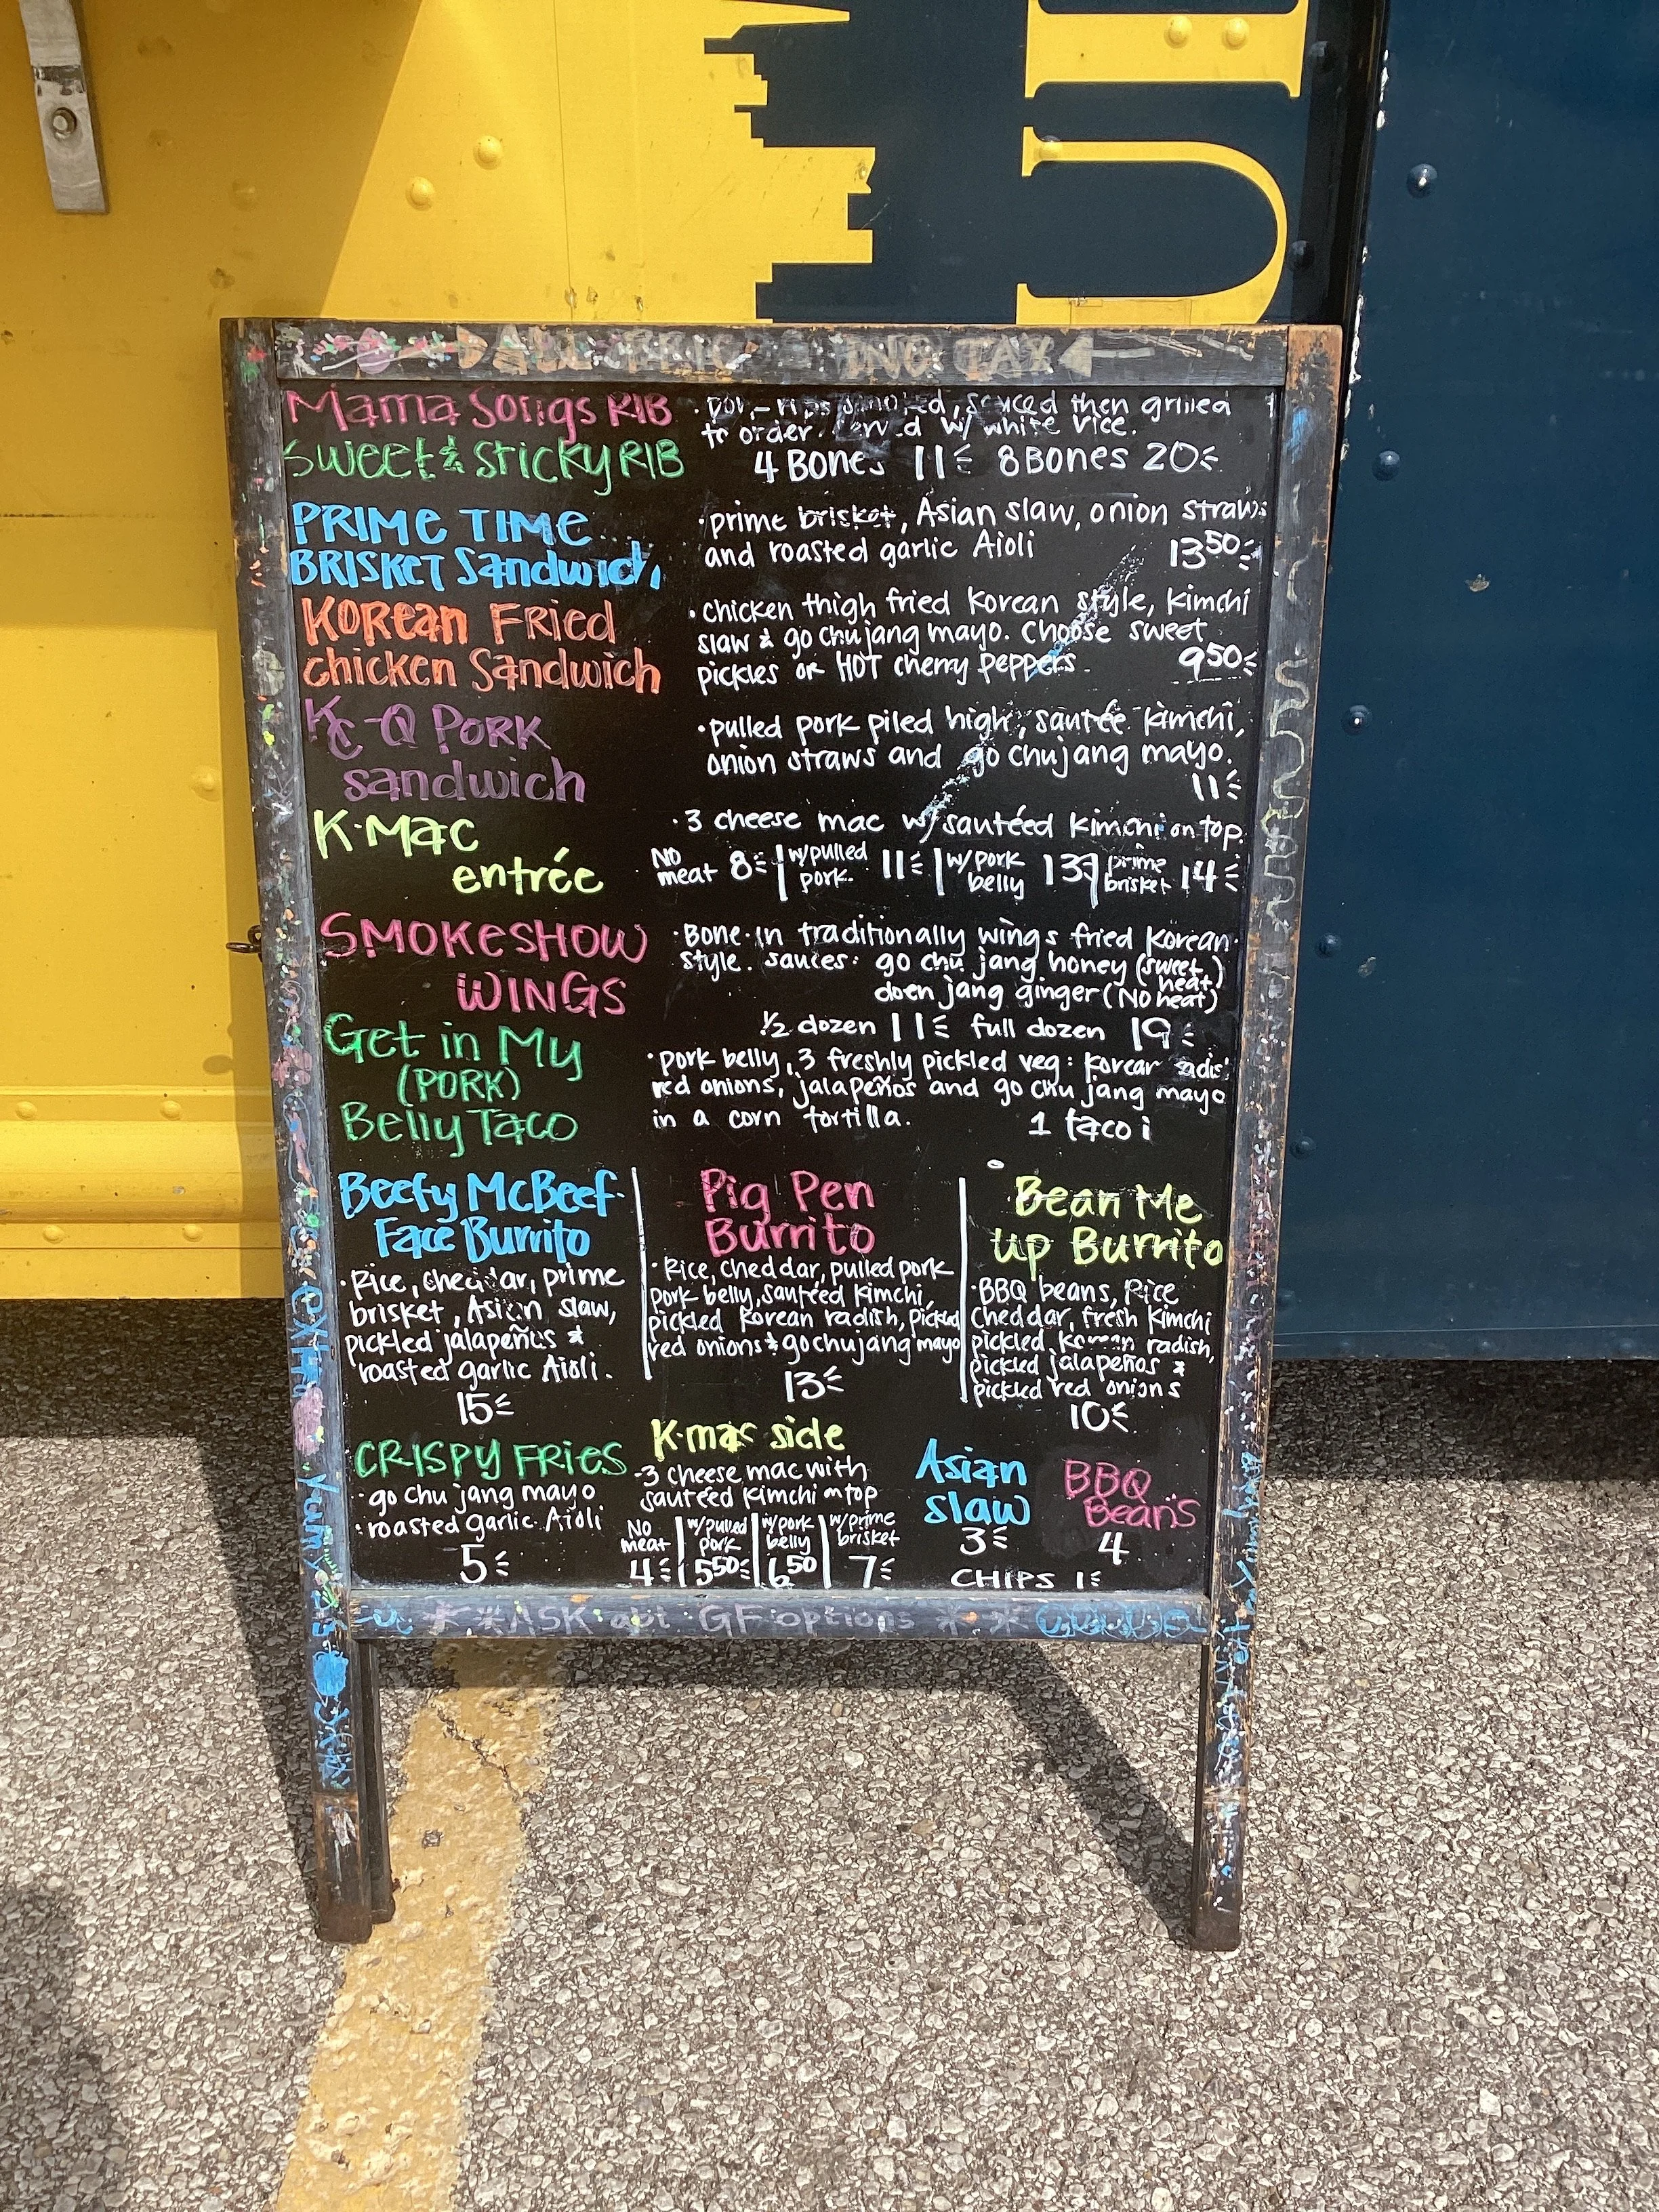 ALL PRIC ING TAX
Mama Songs RIB
Sweet & Sticky RIB
smoked, sauced then grilled
to order. w/ white rice.
4 Bones 11 8 Bones 20
PRIME TIME
BRISKET Sandwich
• prime brisket, Asian slaw, onion straws
and roasted garlic Aioli 13 50
Korean Fried
chicken Sandwich
• chicken thigh fried Korean style, Kimchi
slaw & go chujang mayo. Choose sweet
pickles or HOT cherry peppers. 9 50
KC-Q PORK
sandwich
• pulled pork piled high, sautée kimchi,
onion straws and go chujang mayo.
11
K•Mac
entrée
• 3 cheese mac w/ sautéed kimchi on top.
No meat 8 | w/pulled pork 11 | w/pork belly 13 | prime brisket 14
SMOKESHOW
WINGS
• Bone-in traditionally wings fried Korean
style. sauces: go chu jang honey (sweet heat)
doen jang ginger (No heat)
1/2 dozen 11 full dozen 19
Get in My
(PORK)
Belly Taco
• pork belly, 3 freshly pickled veg: Korean radis
red onions, jalapeños and go chu jang mayo
in a corn tortilla. 1 taco
Beefy McBeef
Face Burrito
• Rice, cheddar, prime
brisket, Asian slaw,
pickled jalapeños &
roasted garlic Aioli.
15
Pig Pen
Burrito
• Rice, cheddar, pulled pork
pork belly, sautéed Kimchi,
pickled Korean radish, pickled
red onions & gochujang mayo
13
Bean Me
up Burrito
• BBQ beans, Rice
Cheddar, fresh Kimchi
pickled Korean radish,
pickled jalapeños &
pickled red onions
10
CRISPY FRIES
• go chu jang mayo
• roasted garlic Aioli
5
K•mac side
-3 cheese mac with
sautéed Kimchi on top
No meat 4 | w/pulled pork 5 50 | w/pork belly 6 50 | w/prime brisket 7
Asian
slaw
3
BBQ
Beans
4
CHIPS 1
**ASK abt GF options **